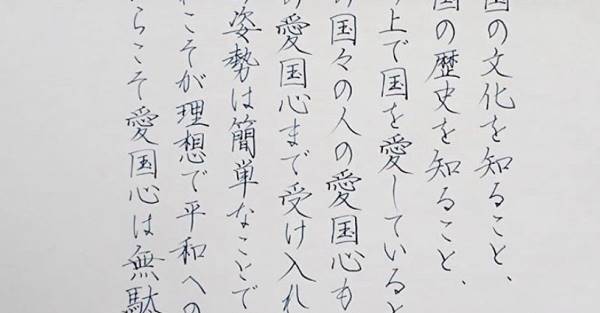 国の文化を知ること、
国の歴史を知ること、
上で国を愛していると
国々の人の愛国心も
愛国心まで受け入れ
姿勢は簡単なことで
こそが理想で平和への
らこそ愛国心は無駄